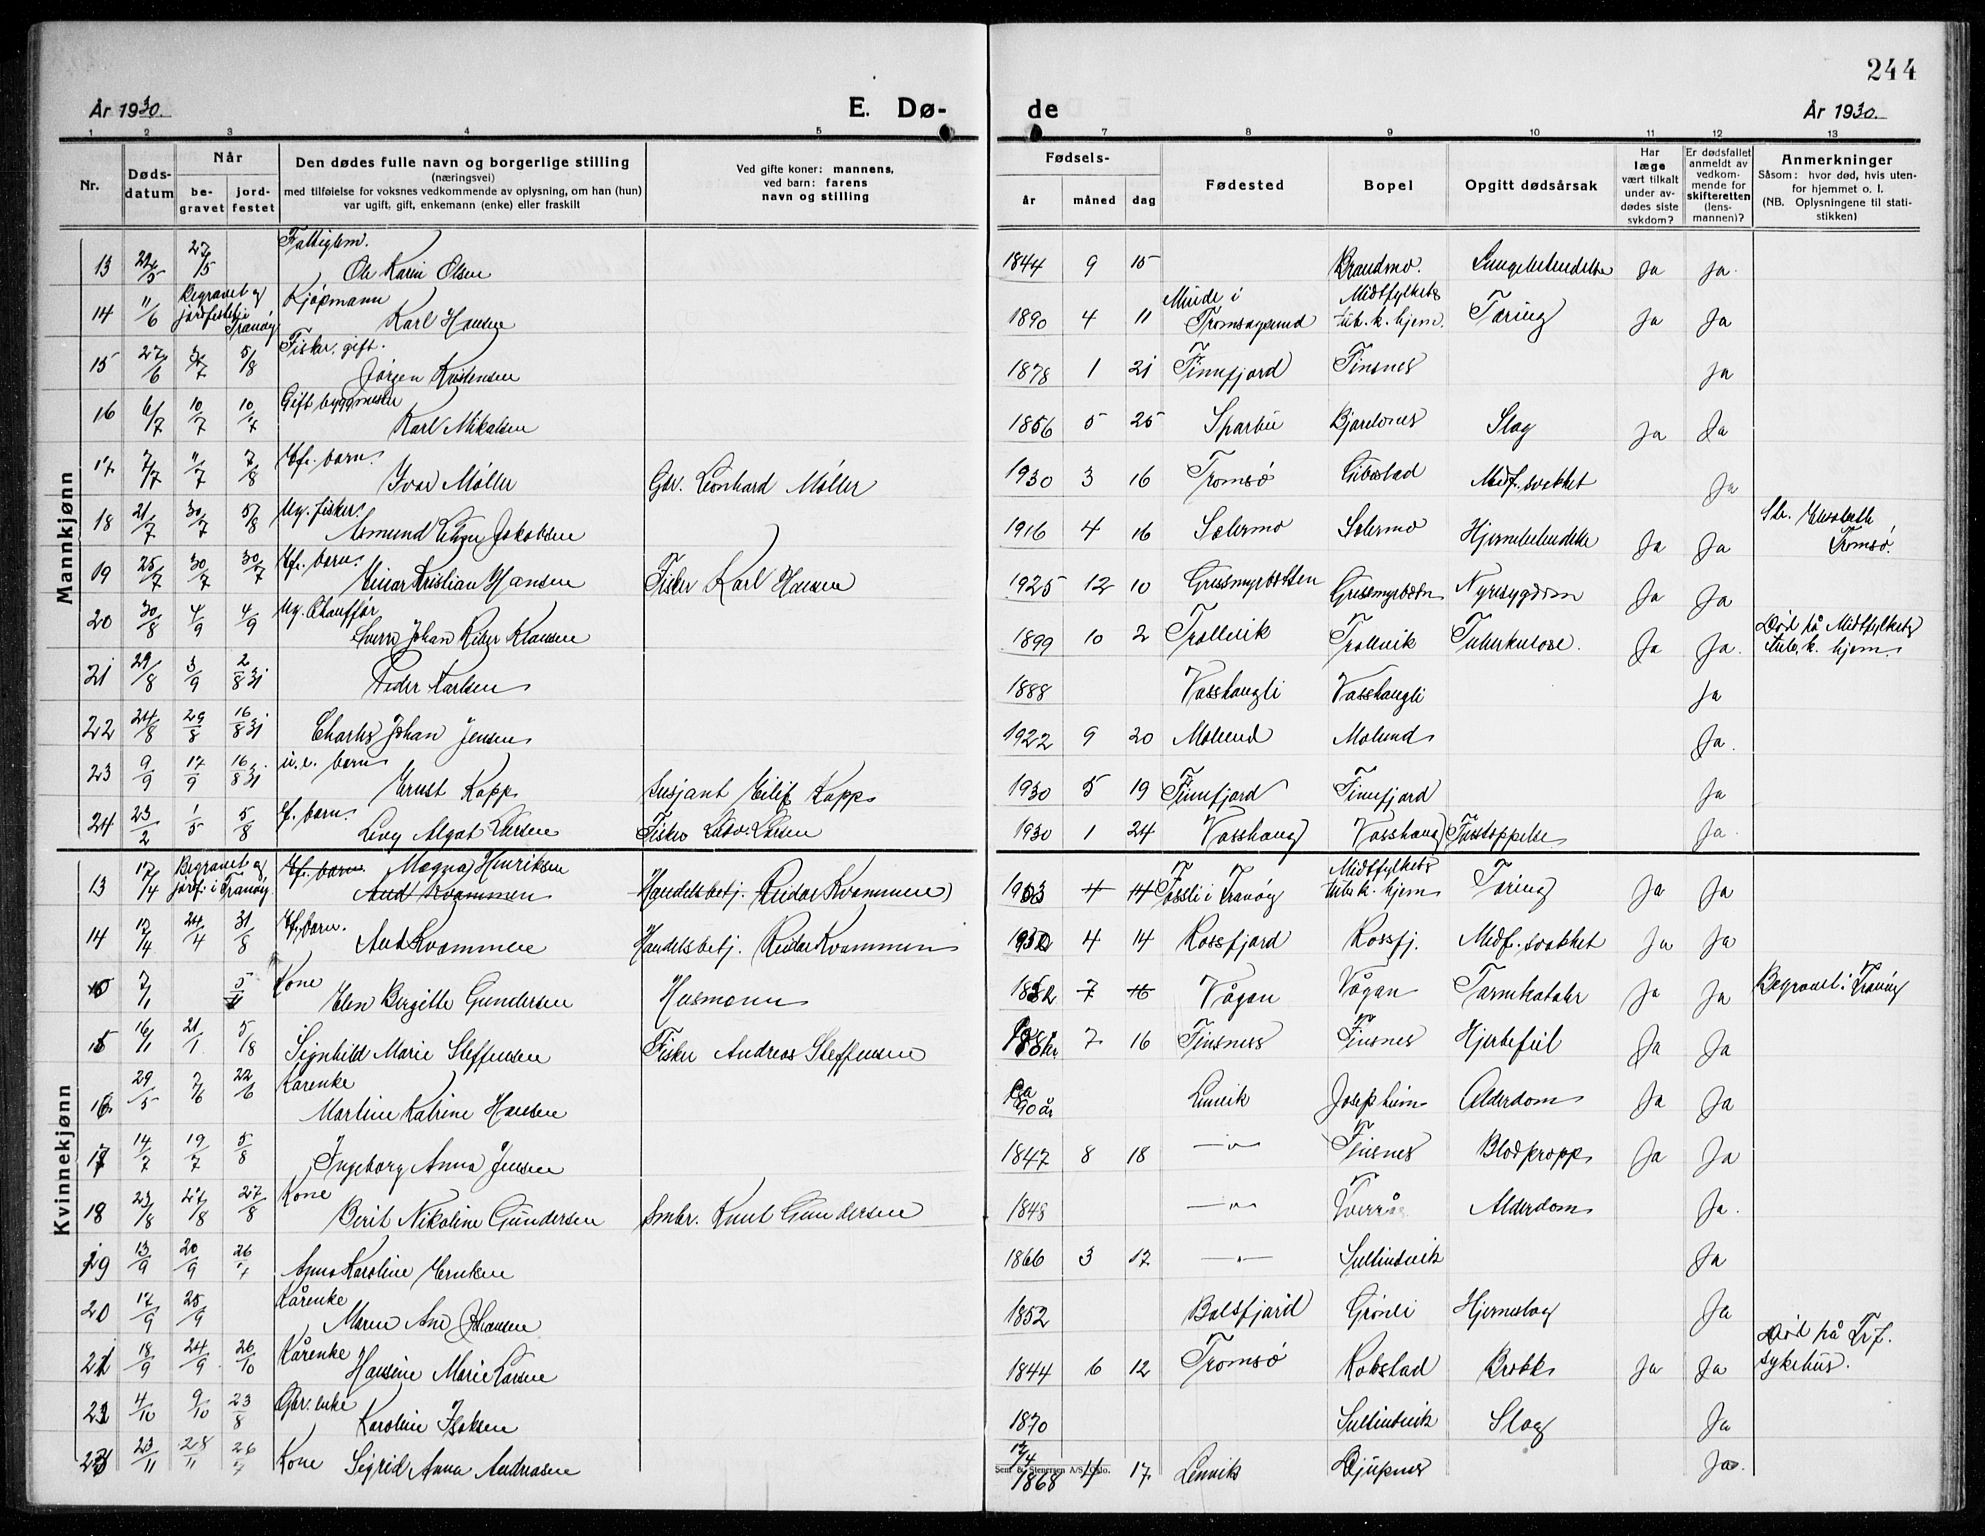 244
År 1930. E. Dø- de År 1930.
1 2 3 4 5 7 8 9 10 11 12 13
Nr. Døds-datum Når be-gravet jord-festet
Den dødes fulle navn og borgerlige stilling
(næringsvei)
med tilføielse for voksnes vedkommende av oplysning, om han (hun)
var ugift, gift, enkemann (enke) eller fraskilt
Ved gifte koner: mannens,
ved barn: farens
navn og stilling
Fødsels- år måned dag
Fødested Bopel Opgitt dødsårsak
Har læge vært tilkalt under av-dødes siste sykdom?
Er dødsfallet anmeldt av vedkom-mende for skifteretten (lens-mannen)?
Anmerkninger
Såsom: hvor død, hvis uten-
for hjemmet o. l.
(NB. Oplysningene til stati-
stikken)
Mannkjønn
13 27/5 Ole Olsen 1844 9 15 Brandmo. Ja Ja.
14 11/6 Begravet og jordfestet i Tranøy Kjøpmann Karl Hansen 1890 4 11 Minde i Tromsøysund Midtfylkets tub. k. hjem. Tæring Ja Ja
15 27/6 5/8 Fisker, gift. Jørgen Kristensen 1878 1 21 Finnfjord Finsnes Ja
16 6/7 10/7 10/7 Gift byggmester Karl Mikalsen 1856 5 25 Sparbu Bjorelvnes Slag Ja Ja
17 7/7 11/7 7/8 Ekf. barn. Ivar Møller Gbr. Leonhard Møller 1930 3 16 Tromsø Gibostad Medf. svakhet Ja
18 21/7 30/7 5/8 Ug. fisker. Asmund Jakobsen 1916 4 16 Solermo Solermo Hjernebetendelse Ja Ja St. Elisabeth Tromsø.
19 25/7 30/7 30/7 Ekf. barn. Einar Kristian Hansen Fisker Karl Hansen 1925 12 10 Grasmyrbotten Grasmyrbotn Nyresygdom Ja Ja
20 30/8 4/9 4/9 Ug. Chauffør Sverre Johan Reder Klausen 1899 10 2 Trollvik Trollvik Tuberkulose. Ja Ja. Død på Midtfylkets tub. k. hjem.
21 29/8 3/9 2/8 31 Peder Karlsen 1888 Vasshaugli Vasshaugli Ja
22 24/8 29/8 16/8 31 Charles Johan Jensen 1922 9 20 Molund Molund Ja.
23 9/9 17/9 16/8 31 u. e. barn Ernst Kapp Eilif Kapp 1930 5 19 Finnfjord Finnfjord Ja
24 23/2 1/5 5/8 Ef. barn. Levy Algot Larsen Fisker Ludv. Larsen 1930 1 24 Vasshaug Vasshaug Ja.
Kvinnekjønn
13 17/4 Begravet og jordf. i Tranøy Ekf. barn Magna Henriksen Aud Kvammen Handelsbetj. Reidar Kvammen 1903 4 14 Fossli i Tranøy Midtfylkets tub. k. hjem Tæring Ja Ja
14 17/4 24/4 31/8 Ekf. barn. Aud Kvammen Handelsbetj. Reidar Kvammen 1930 4 14 Rossfjord Rossfj. Medf. svakhet Ja Ja
7/1 Kone Elen Birgitte Gundersen Husmann 7 16 Vågan Vågan Tarmkatahr Ja Ja Begravet i Tranøy
15 16/1 21/1 5/8 Signhild Marie Steffensen Fisker Andreas Steffensen 7 16 Finsnes Finsnes Hjertefeil Ja Ja
16 29/5 7/6 22/6 Kårenke Martine Katrine Hansen Ca 90 år Lenvik Josepheim Alderdom Ja Ja
17 14/7 19/7 5/8 Ingeborg Anna Jensen 1847 8 18 —"— Finsnes Blodpropp Ja Ja
18 23/8 27/8 27/8 Kone Berit Nikoline Gundersen Smbr. Knut Gundersen 1848 —"— Tverrå Alderdom Ja.
19 13/9 20/9 Anna Karoline Eriksen 1866 3 17 —"— Sultindvik Ja
20 17/9 25/9 Kårenke Maren Ane Johansen 1852 Balsfjord Grønli Hjerneslag Ja
21 18/9 24/9 26/10 Kårenke Hansine Marie Larsen 1844 6 12 Tromsø Kobstad Brokk Ja Ja Død på Tr.f. sykehus.
22 4/10 9/10 23/8 Gbr. enke Karoline Isaksen 1870 Sultindvik Slag Ja
23 23/11 28/11 Kone Sigrid Anna Andreasen 1868 4 17 Lenvik Djupnes Ja.
Sem & Stenersen A/S, Oslo.